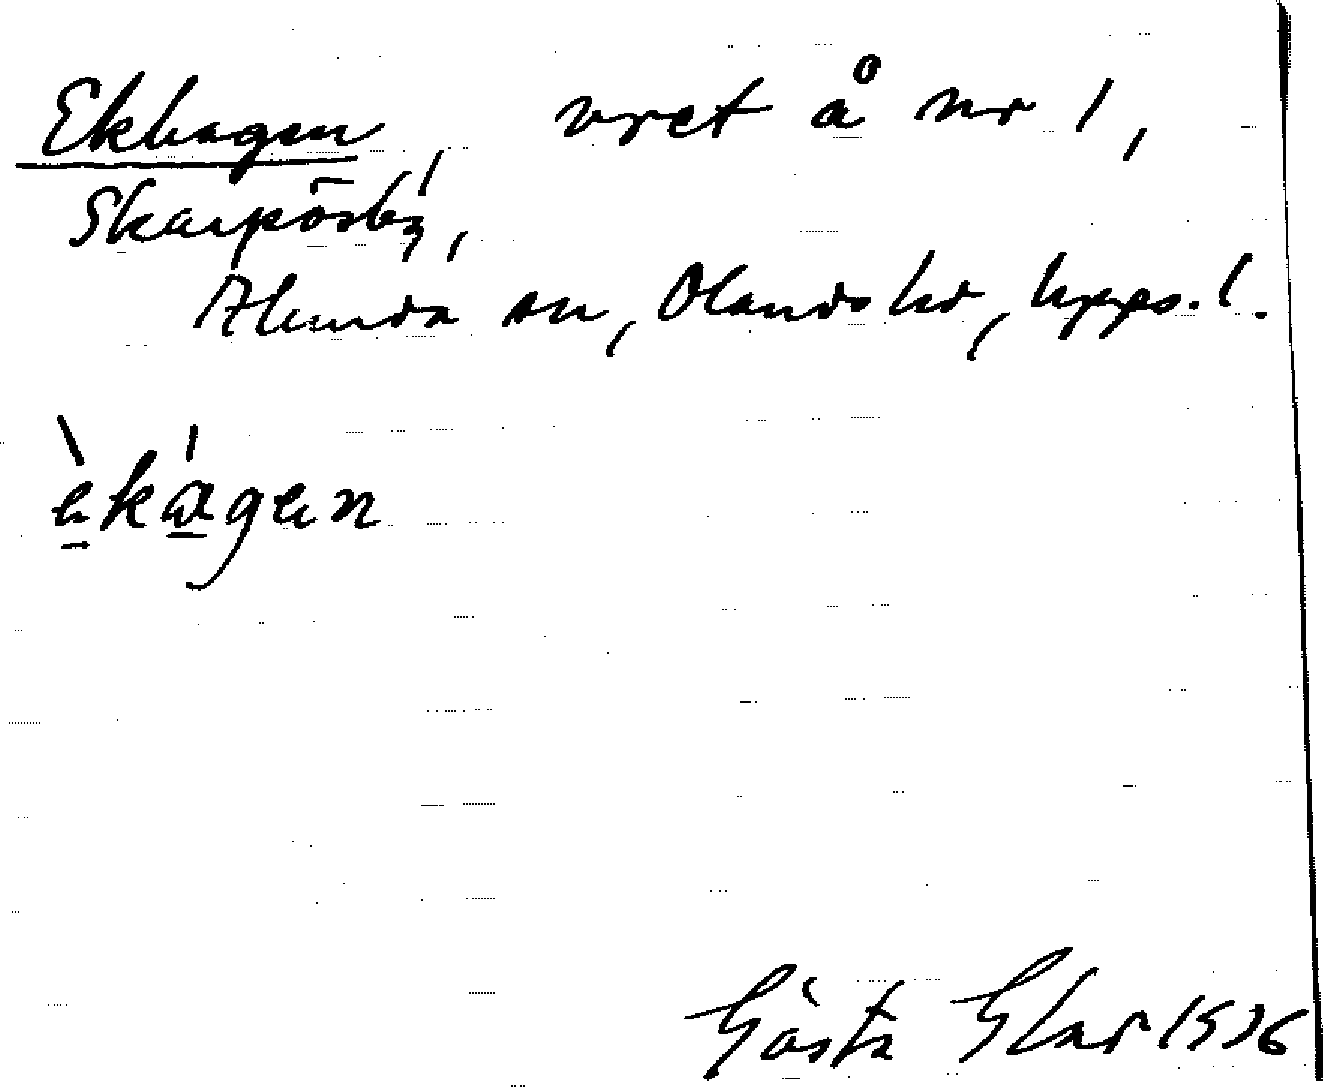 Ekhagen, vret å nr 1,
Skarpösby,
Alunda sn, Olands hd, Upps. l.
èkágen
Gösta Glar 1936